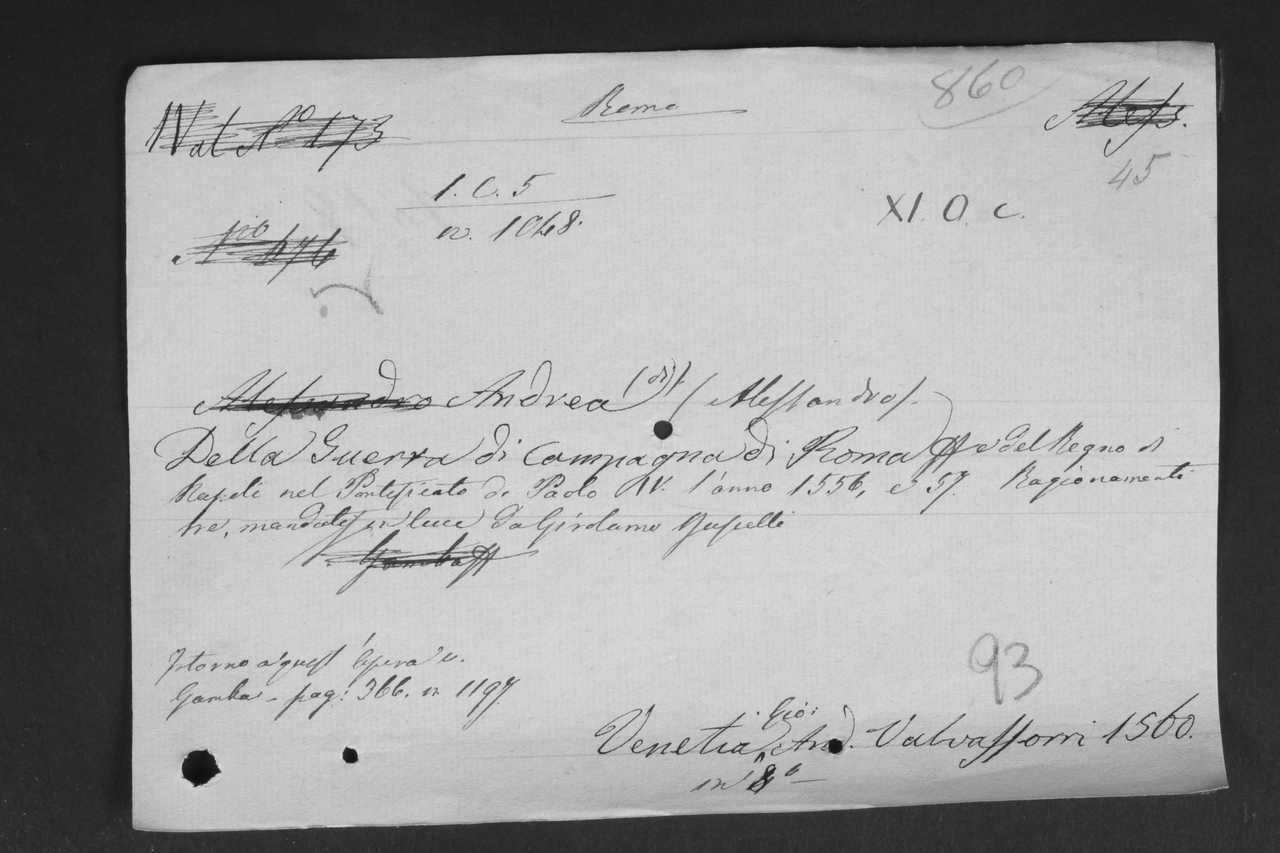 Roma
860
Val N.º 173
Aless.
45
I. C. 5
n. 1048.
XI. O. c.
Nro 676
Alessandro Andrea (di) (Alessandro).
Della Guerra di Campagna di Roma e del Regno di
Napoli nel Pontificato di Paolo IV. l'anno 1556, e 57. Ragionamenti
tre, mandati in luce da Girolamo Ruscelli
Gamba
Intorno a quest'Opera v.
Gamba - pag: 366. n 1197.
93
Venetia Gio: And. Valvassorri 1560.
in 8º